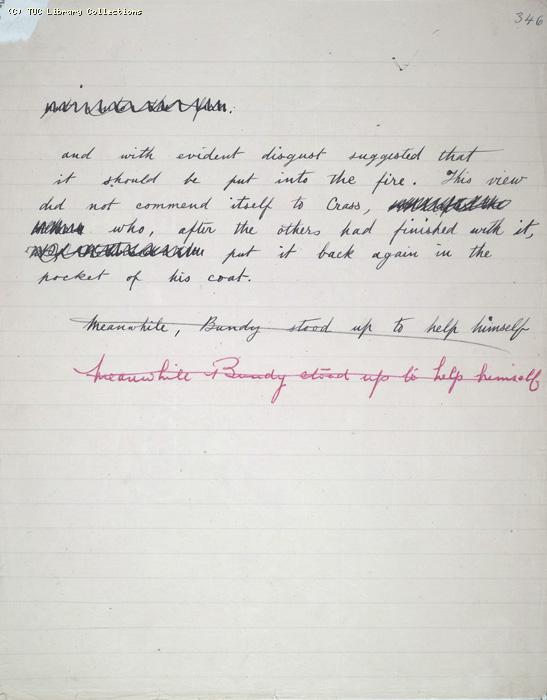 (C) TUC Library Collections
346
and with evident disgust suggested that
it should be put into the fire. This view
did not commend itself to Crass,
who, after the others had finished with it,
put it back again in the
pocket of his coat.
Meanwhile, Bundy stood up to help himself
Meanwhile Bundy stood up to help himself